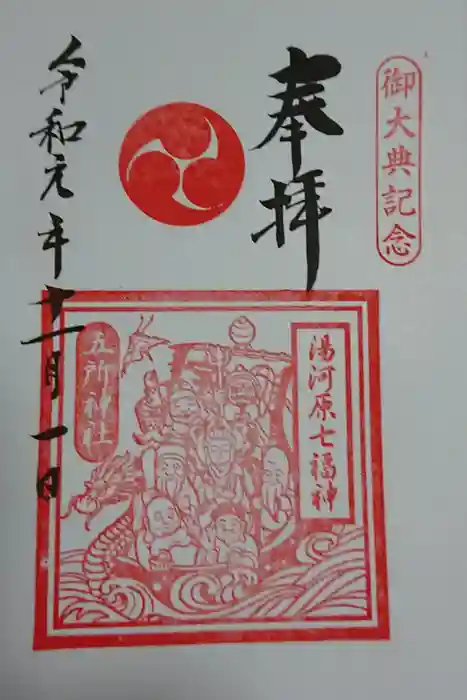 御大典記念
奉拝
令和元年十一月一日
湯河原七福神
五所神社